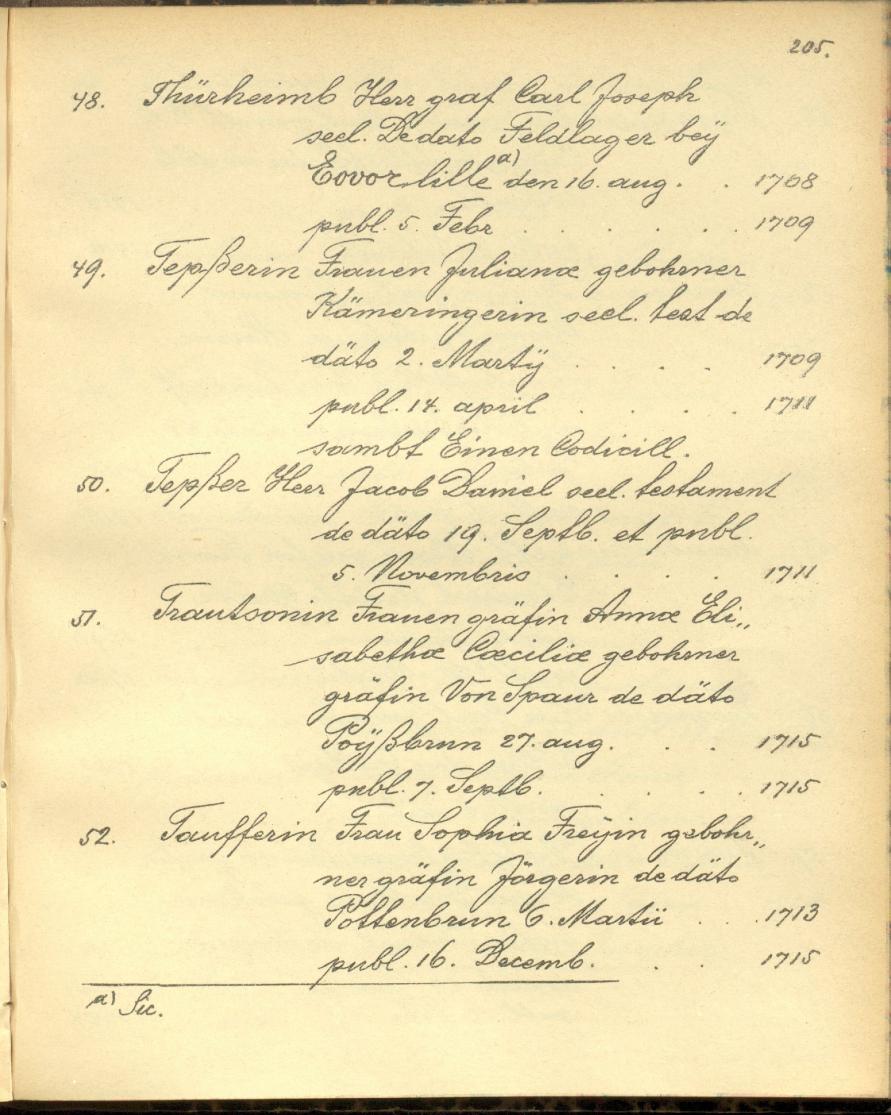 205.
48. Thürheimb Herr graf Carl Joseph
seel. De dato Feldlager beÿ
Eovor lille a) den 16. aug. . . 1708
publ. 5. Febr . . . . . . 1709
49. Tepßerin Frauen Julianæ gebohrner
Kämeringerin seel. test de
däto 2. Martÿ . . . . 1709
publ. 14. april . . . . 1711
sambt Einen Codicill.
50. Tepßer Herr Jacob Daniel seel. testament
de däto 19. Septb. et publ.
5. Novembris . . . . 1711
51. Trautsonin Frauen gräfin Annæ Eli„
sabethæ Cæciliæ gebohrner
gräfin Von Spaur de däto
Poÿßbrun 27. aug. . . . 1715
publ. 7. Septb. . . . . 1715
52. Taufferin Frau Sophia Freÿin gebohr„
ner gräfin Jörgerin de däto
Pottenbrun 6. Martii . . . 1713
publ. 16. Decemb. . . . 1715
a) Sic.